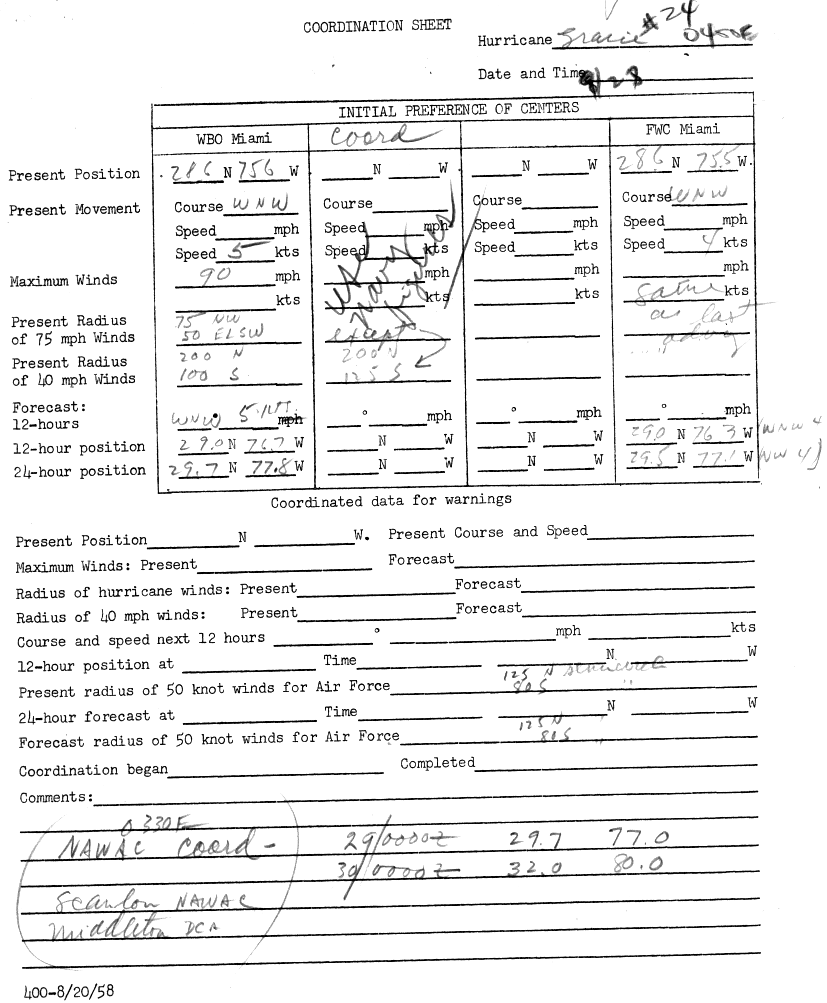 COORDINATION SHEET
#24
Hurricane Gracie 0450E
Date and Time 9/28
INITIAL PREFERENCE OF CENTERS
WBO Miami Coord FWC Miami
Present Position 286 N 756 W N W N W 286 N 755 W.
Present Movement Course WNW Course Course Course WNW
Speed mph Speed mph Speed mph Speed mph
Speed 5 kts Speed kts Speed kts Speed 4 kts
Maximum Winds 90 mph mph mph mph
kts kts kts same kts
use Navy figures
as last advsy
Present Radius 75 NW
of 75 mph Winds 50 ELSW except
Present Radius 200 N 200 N
of 40 mph Winds 100 S 125 S
Forecast:
12-hours WNW 5 kts. mph ° mph ° mph ° mph
12-hour position 29.0 N 76.7 W N W N W 29.0 N 76.3 W (WNW 4
24-hour position 29.7 N 77.8 W N W N W 29.5 N 77.1 W (NW 4)
Coordinated data for warnings
Present Position N W. Present Course and Speed
Maximum Winds: Present Forecast
Radius of hurricane winds: Present Forecast
Radius of 40 mph winds: Present Forecast
Course and speed next 12 hours ° mph kts
12-hour position at Time N W
Present radius of 50 knot winds for Air Force 125 N
80 S "
24-hour forecast at Time N W
Forecast radius of 50 knot winds for Air Force 125 N
80 S "
Coordination began Completed
Comments:
0330E
NAWAC Coord - 29/0000Z 29.7 77.0
30/0000Z 32.0 80.0
Scanlon NAWAC
Middleton DCA
400-8/20/58